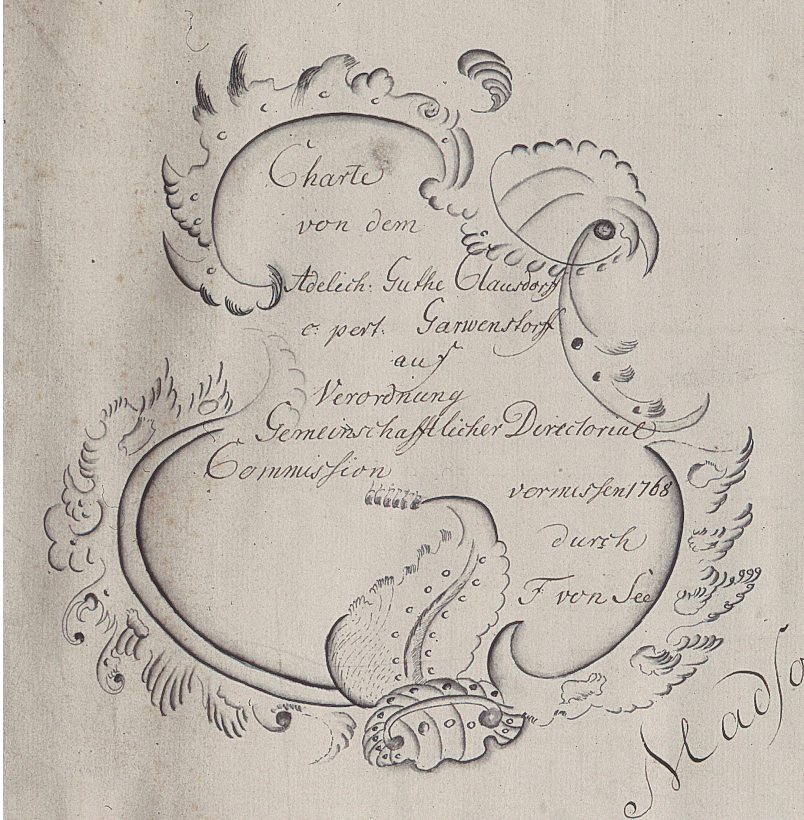 Charte
von dem
Adelich: Guthe Clausdorff
c: pert: Garwenstorff
auf
Verordnung
Gemeinschafftlicher Directorial
Commission
vermissen 1768
durch
F von See
Madso